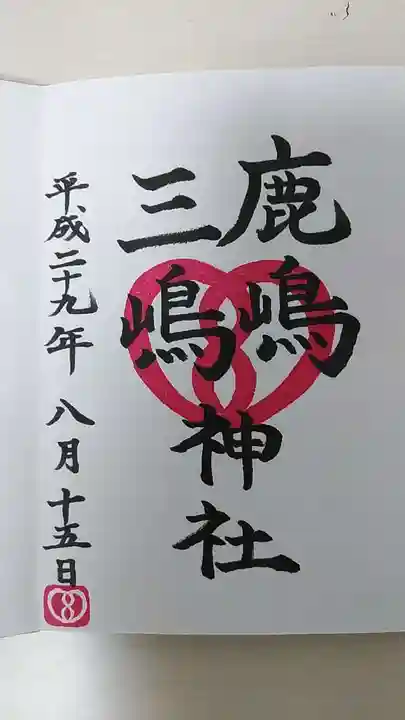 鹿嶋
三嶋
神社
平成二十九年 八月十五日